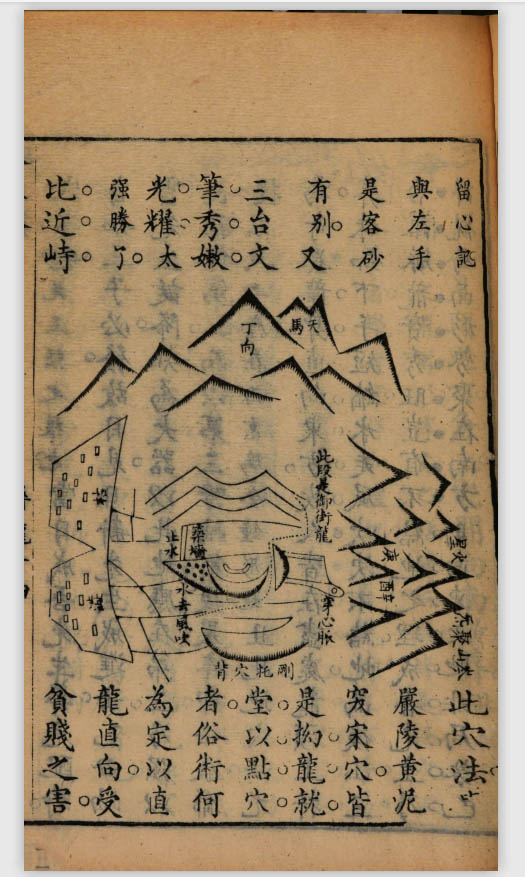 留心認
與左手
是客砂
有別又
三台文
筆秀嫩
光耀太
强勝了
比近峙
天馬
丁向
此段是御街龍
築墻
止水
水去風吹
穿心脈
剛托穴背
庚
酉
辛
火星
此穴法
嚴陵黄泥
宋穴皆
是拗龍就
堂以點穴
者俗術何
為定以直
龍直向受
貧賤之害